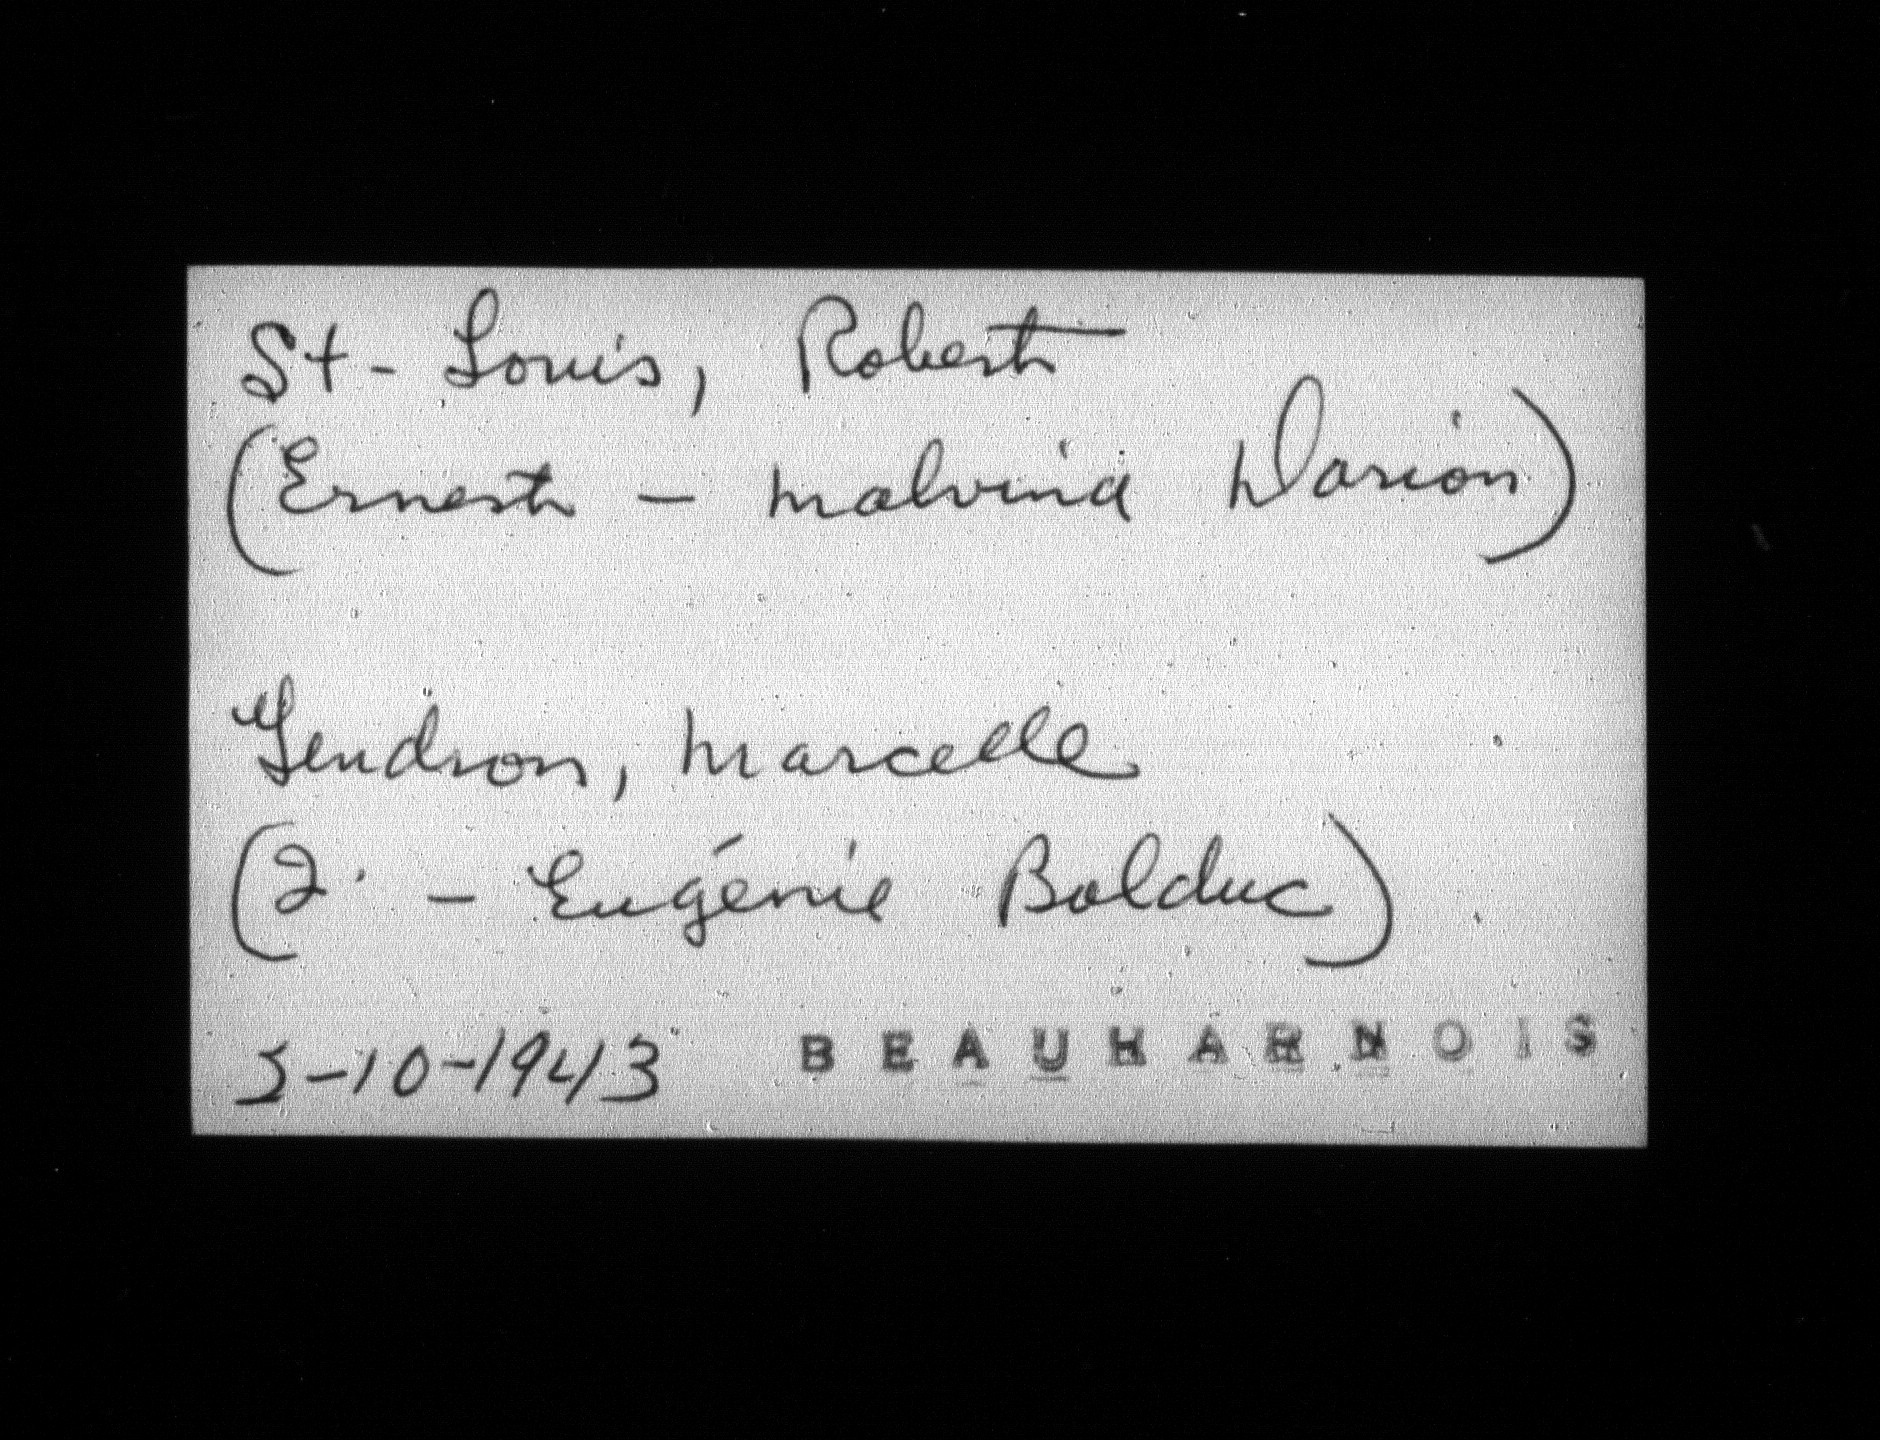 St-Louis, Robert
(Ernest - Malvina Darion)
Gendron, Marcelle
(J. - Eugénie Bolduc)
5-10-1943 BEAUHARNOIS